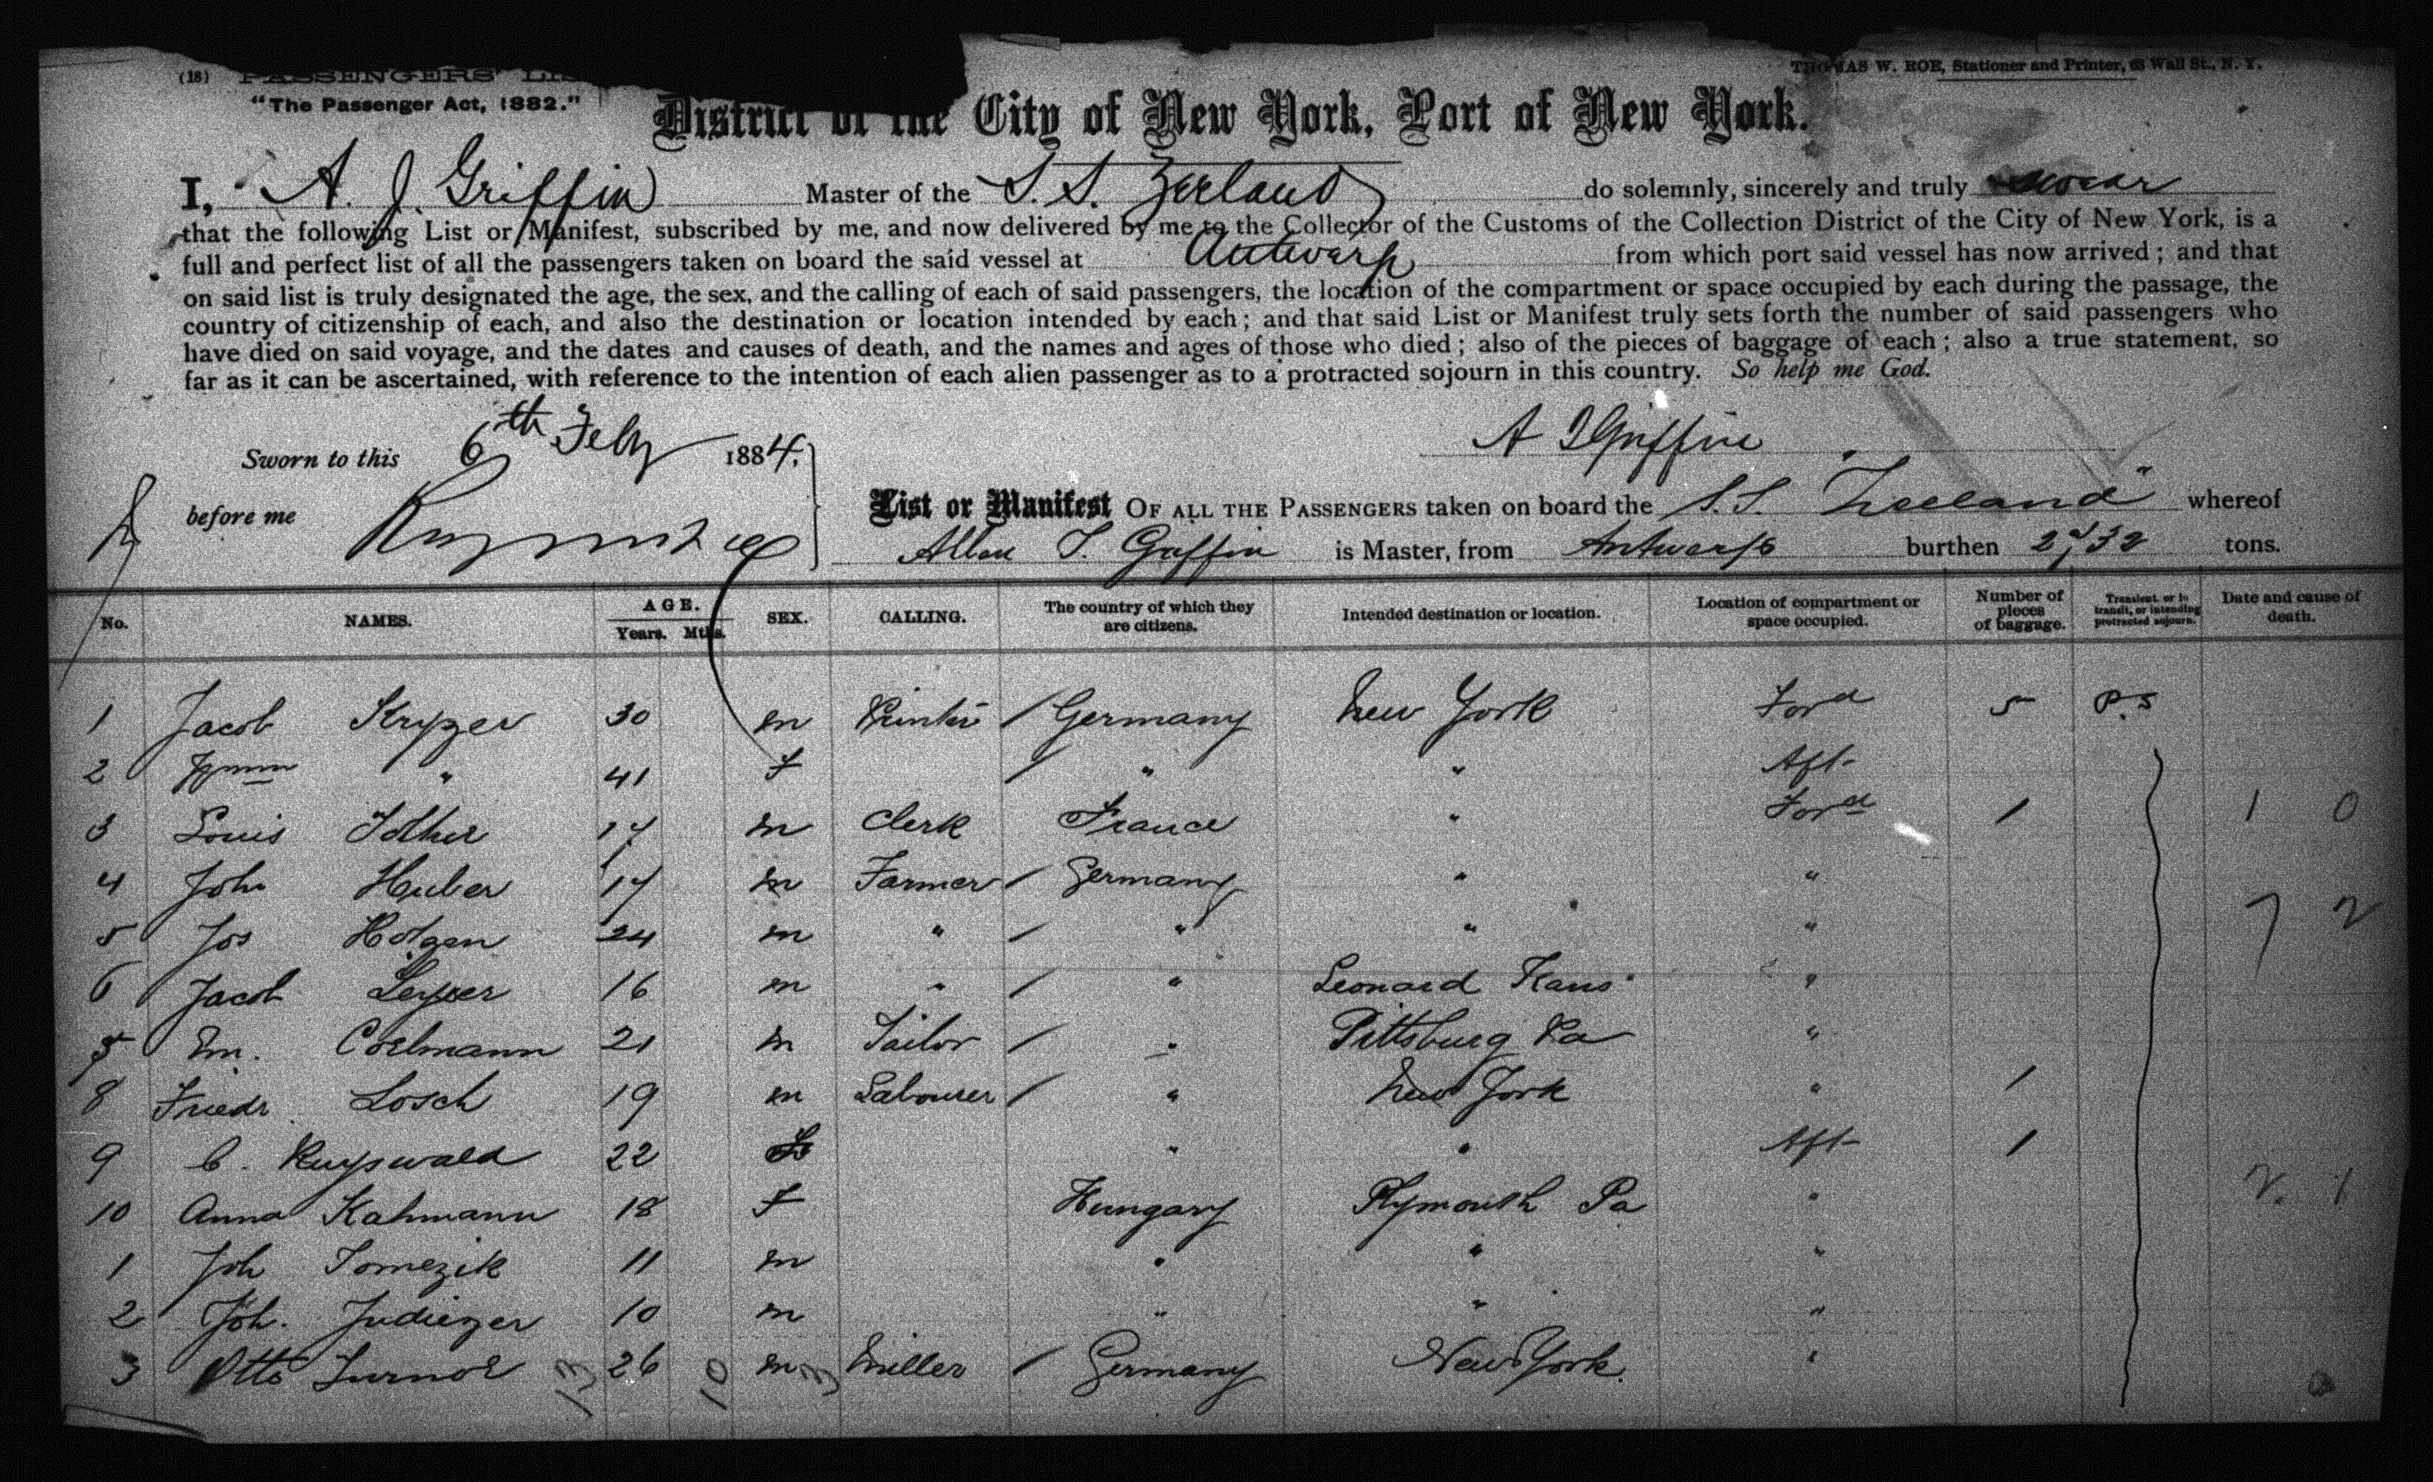 (18) PASSENGERS' LIS
"The Passenger Act, 1882."
THOMAS W. ROE, Stationer and Printer, 63 Wall St., N. Y.
District of the City of New York, Port of New York.
I, A. J. Griffin Master of the S. S. Zeeland do solemnly, sincerely and truly swear
that the following List or Manifest, subscribed by me, and now delivered by me to the Collector of the Customs of the Collection District of the City of New York, is a
full and perfect list of all the passengers taken on board the said vessel at Antwerp from which port said vessel has now arrived; and that
on said list is truly designated the age, the sex, and the calling of each of said passengers, the location of the compartment or space occupied by each during the passage, the
country of citizenship of each, and also the destination or location intended by each; and that said List or Manifest truly sets forth the number of said passengers who
have died on said voyage, and the dates and causes of death, and the names and ages of those who died; also of the pieces of baggage of each; also a true statement, so
far as it can be ascertained, with reference to the intention of each alien passenger as to a protracted sojourn in this country. So help me God.
Sworn to this 6th Feby 1884.
A J Griffin
before me
List or Manifest OF ALL THE PASSENGERS taken on board the S.S. "Zeeland" whereof
Griffin is Master, from Antwerp burthen tons.
No. NAMES. AGE. Years. Mths. SEX. CALLING. The country of which they are citizens. Intended destination or location. Location of compartment or space occupied. Number of pieces of baggage. Transient, or in transit, or intending protracted sojourn. Date and cause of death.
1 Jacob Kryzer 30 m Printer / Germany New York Ford 5 P.S
2 " 41 f / " " Aft
3 Louis 17 m Clerk France " Ford 1 1 0
4 Joh Huber 17 m Farmer / Germany " "
5 Jos Holgen 24 m " / " " " 7 2
6 Jacob 16 m " / " Leonard Kans "
Em. Coelmann 21 m Tailor / " Pittsburg Pa "
8 Friedr Losch 19 m Labourer / " New York " 1
9 C. Ruyswald 22 " " Aft 1
10 Anna Kahmann 18 f Hungary Plymouth Pa " 2. 1
1 Joh Tomezik 11 m " " "
2 Joh. Judiezer 10 m " " "
3 Otto 13 26 10 m 3 Miller / Germany New York "